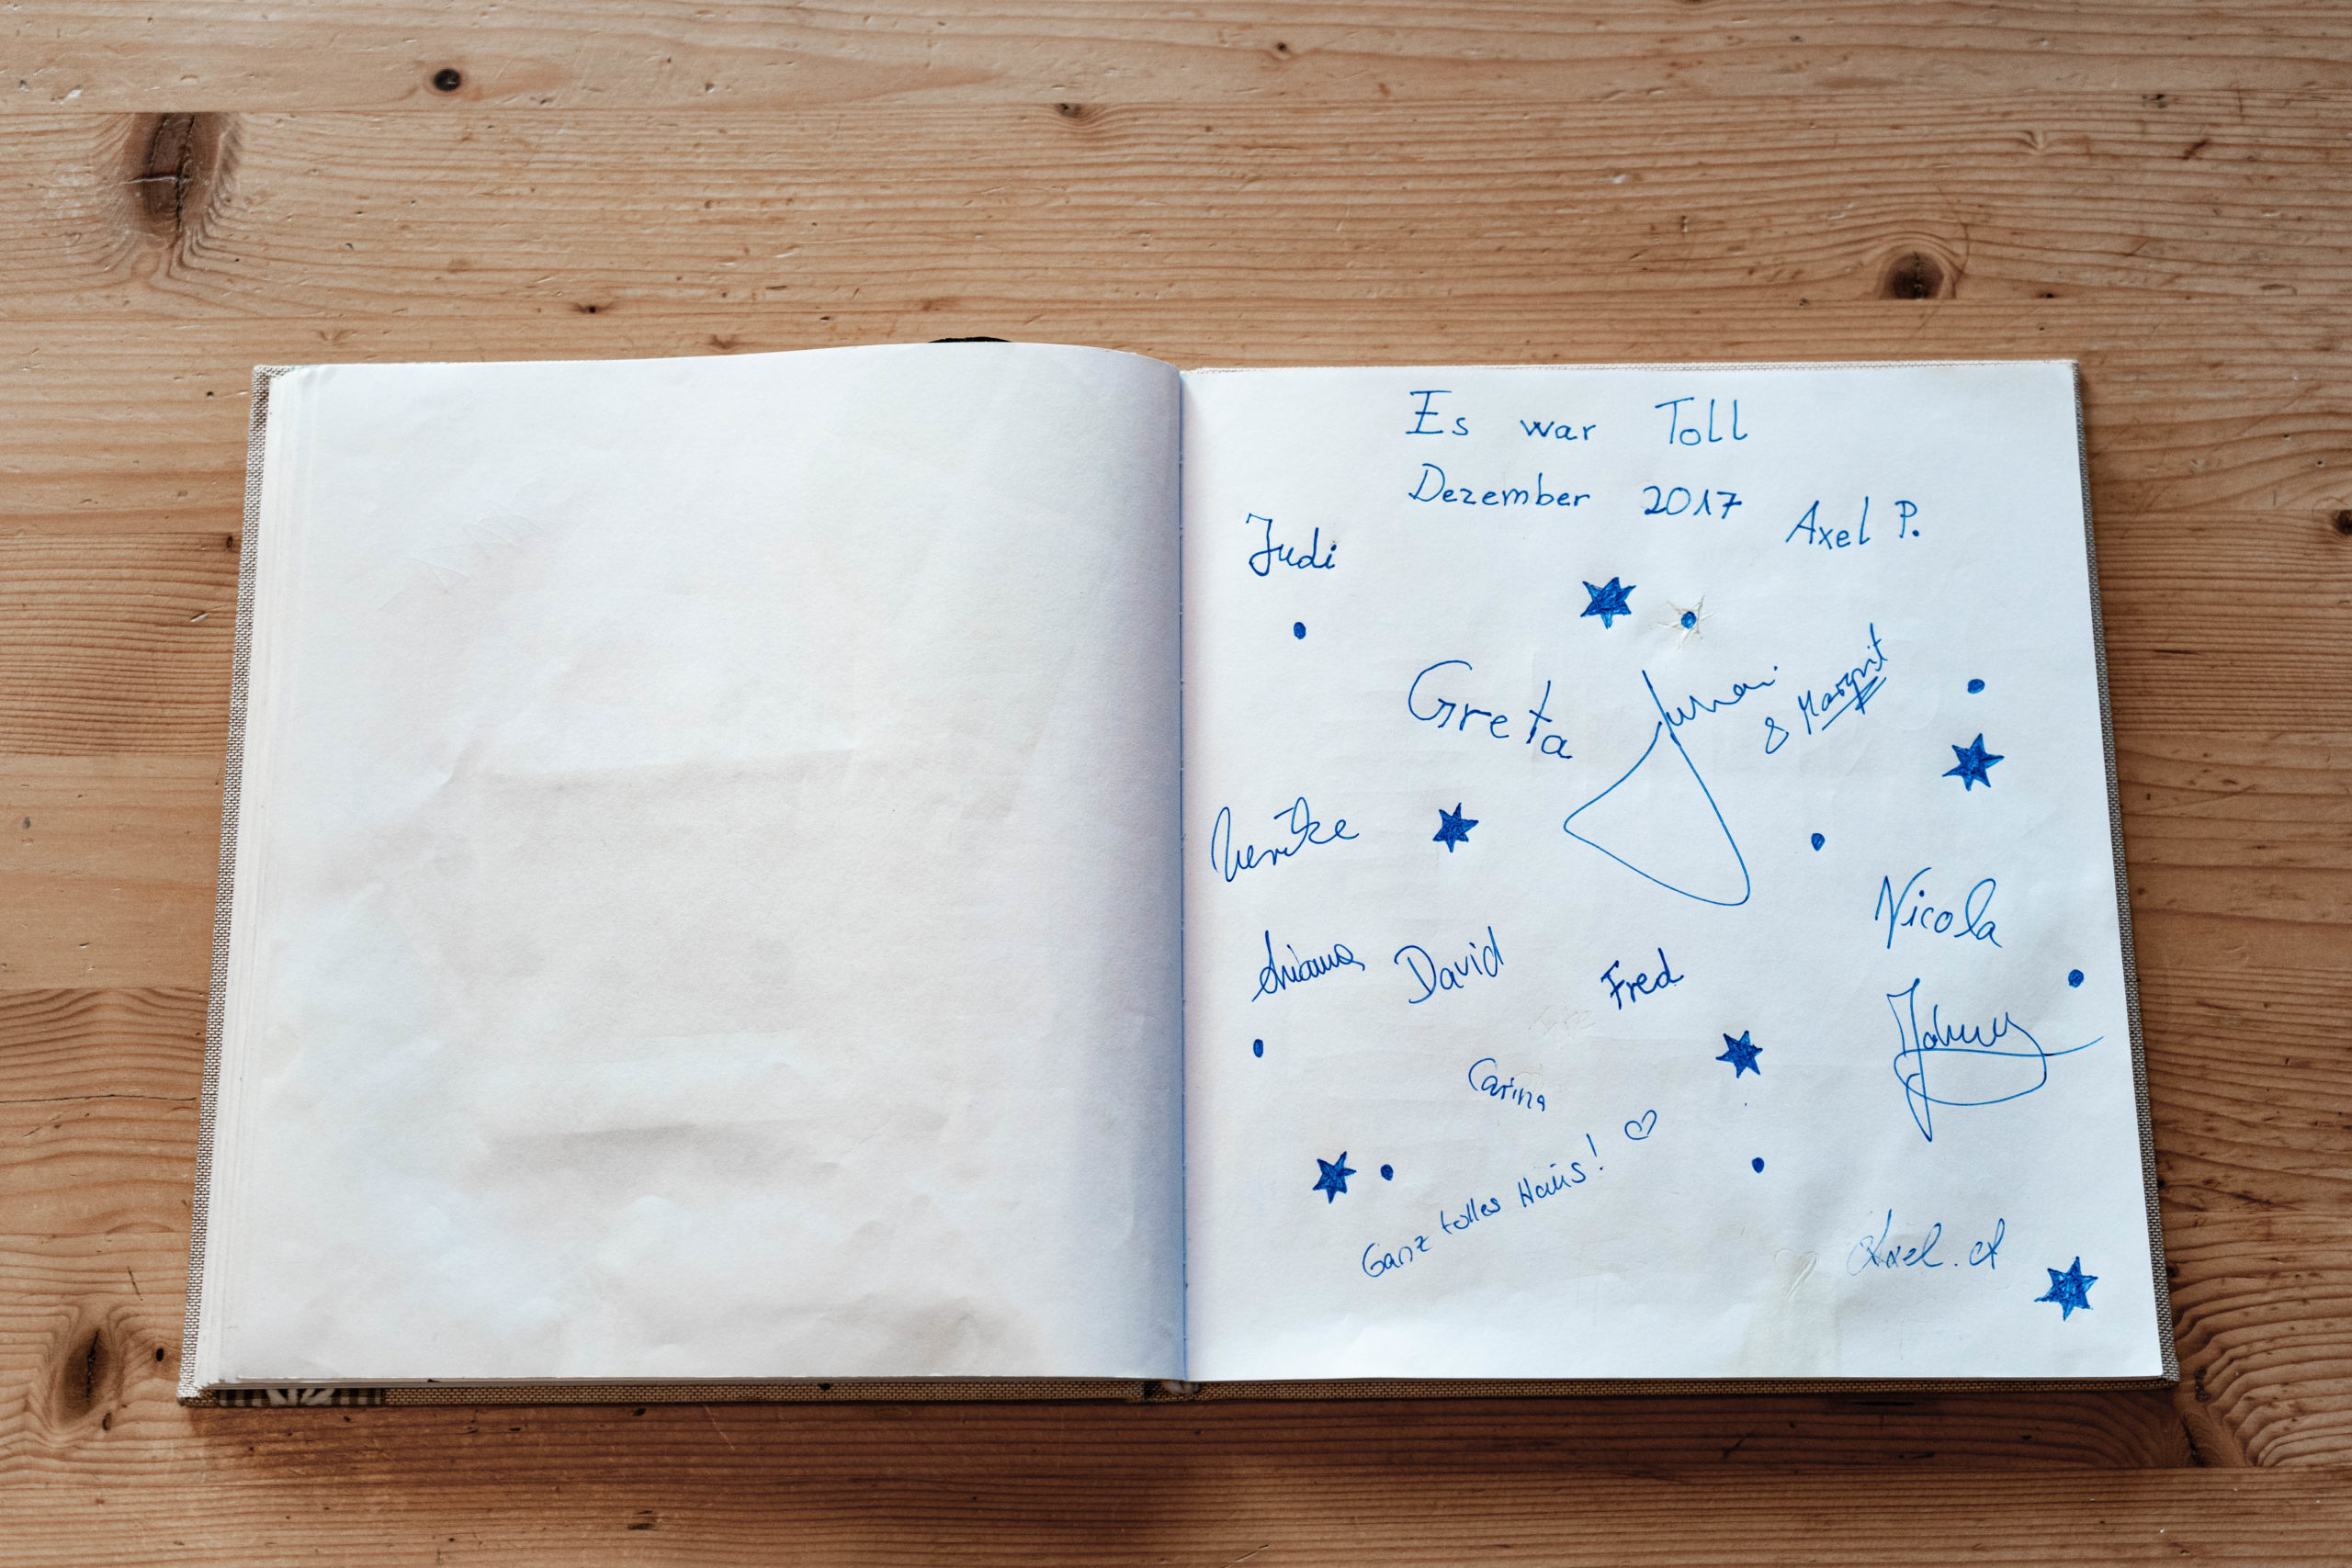 Es war Toll
Dezember 2017
Axel P.
Judi
Greta
& Margrit
Nicola
David
Fred
Johnny
Carina
Ganz tolles Haus! ♡
Axel. A